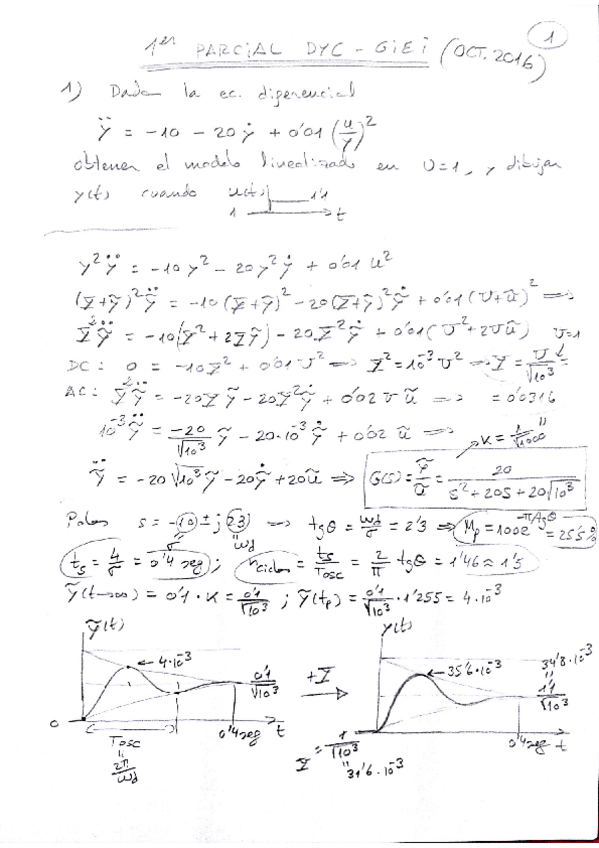 1
1er PARCIAL DYC - GiEi (OCT. 2016)
1) Dada la ec. diferencial
ÿ = -10 - 20 ẏ + 0'01 (u/y)²
obtener el modelo linealizado en U=1, y dibujar
y(t) cuando u(t) 1'1
1 t
y² ÿ = -10 y² - 20 y² ẏ + 0'01 u²
(Y+ỹ)² ỹ̈ = -10 (Y+ỹ)² - 20(Y+ỹ)² ỹ̇ + 0'01 (U+ũ)² =>
Y² ỹ̈ = -10(Y² + 2Yỹ) - 20Y² ỹ̇ + 0'01 (U² + 2Uũ) U=1
DC: 0 = -10Y² + 0'01 U² => Y² = 10⁻³ U² => Y = U/√10³ =
AC: Y² ỹ̈ = -20Yỹ - 20Y² ỹ̇ + 0'02 U ũ => = 0'0316
10⁻³ ỹ̈ = -20/√10³ ỹ - 20·10⁻³ ỹ̇ + 0'02 ũ => K = 1/√1000
ỹ̈ = -20√10³ ỹ - 20ỹ̇ + 20ũ => G(s) = ỹ/ũ = 20/(s² + 20s + 20√10³)
Polos s = -10 ± j 23 => tgθ = ωd/σ = 2'3 => Mp = 100e^(-π/tgθ) = 25'5%
σ ωd
ts = 4/σ = 0'4 seg; nciclos = ts/Tosc = 2/π tgθ = 1'46 ≈ 1'5
ỹ(t→∞) = 0'1 · K = 0'1/√10³ ; ỹ(tp) = 0'1/√10³ · 1'255 = 4·10⁻³
ỹ(t) y(t)
4·10⁻³ 0'1/√10³ +Y 35'6·10⁻³ 34'8·10⁻³ = 1'1/√10³
0 Tosc = 2π/ωd 0'4 seg t Y = 1/√10³ = 31'6·10⁻³ 0'4 seg t